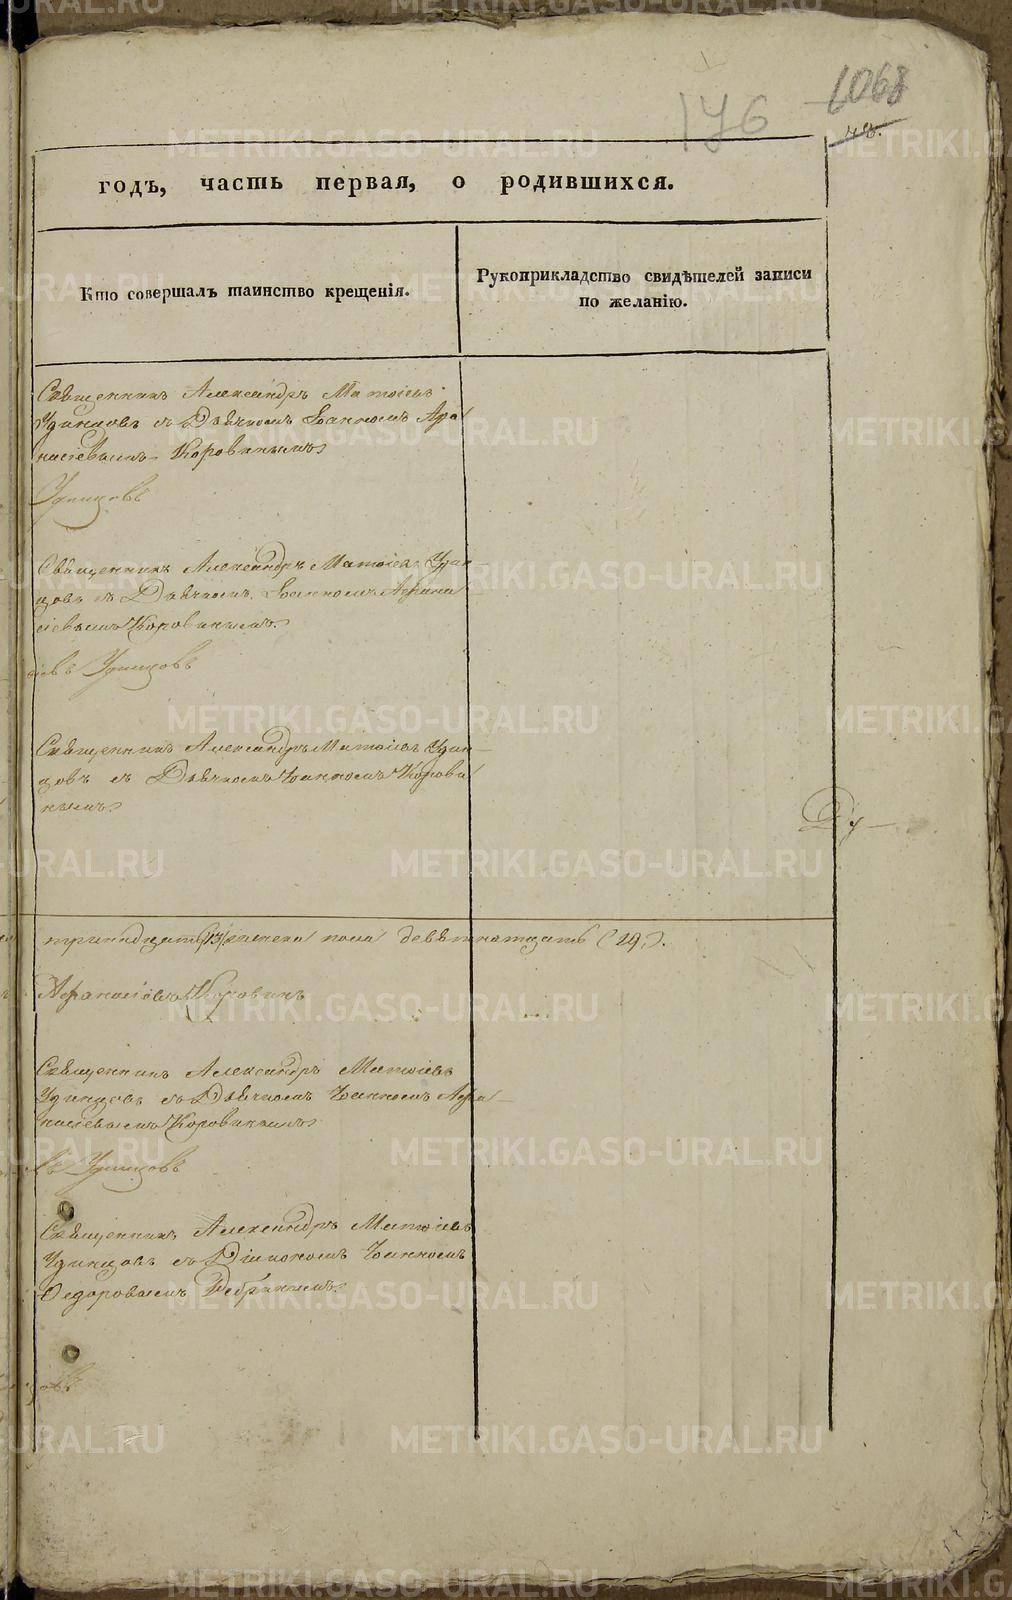 1068
176
48.
годъ, часть первая, о родившихся.
Кто совершалъ таинство крещенія.
Рукоприкладство свидѣтелей записи
по желанію.
Священникъ Александръ Матѳіевъ
Удинцовъ съ Дьячкомъ Іоанномъ Афа
насіевымъ Коровинымъ
Удинцовъ
Священникъ Александръ Матѳіевъ Удин-
цовъ съ Дьячкомъ Іоанномъ Афана
сіевымъ Коровинымъ.
іевъ Удинцовъ
Священникъ Александръ Матѳіевъ Удин-
цовъ съ Дьячкомъ Іоанномъ Корови
нымъ
тринадцать (13) женска пола девятнатцать (19).
Афанасіевъ Коровинъ
Священникъ Александръ Матѳіевъ
Удинцовъ съ Дьячкомъ Іоанномъ Афа-
насіевымъ Коровинымъ
въ Удинцовъ
Священникъ Александръ Матѳіевъ
Удинцовъ съ Діакономъ Іоанномъ
Ѳедоровымъ
овъ
METRIKI.GASO-URAL.RU